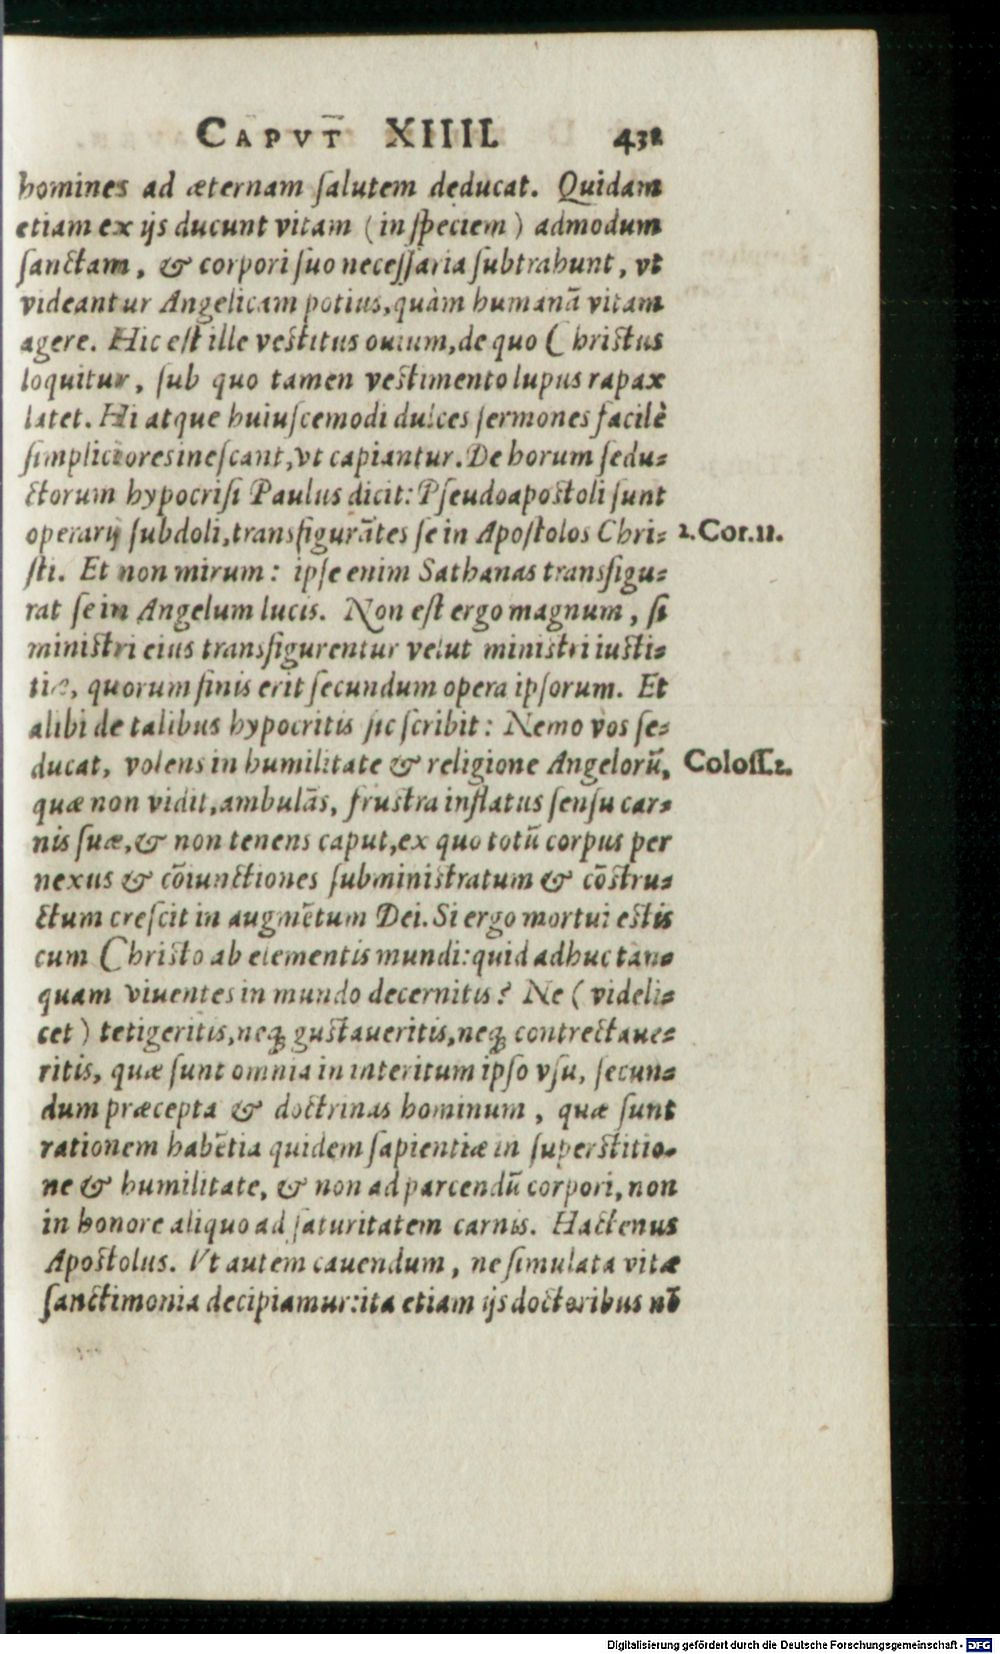 CAPVT XIIII. 432
homines ad æternam ſalutem deducat. Quidam
etiam ex ijs ducunt vitam (in ſpeciem) admodum
ſanctam, & corpori ſuo neceſſaria ſubtrahunt, vt
videantur Angelicam potius, quàm humanā vitam
agere. Hic eſt ille veſtitus ouium, de quo Chriſtus
loquitur, ſub quo tamen veſtimento lupus rapax
latet. Hi atque huiuſcemodi dulces ſermones facilè
ſimpliciores ineſcant, vt capiantur. De horum ſedu-
ctorum hypocriſi Paulus dicit: Pſeudoapoſtoli ſunt
operarij ſubdoli, transfigurātes ſe in Apoſtolos Chri- 2. Cor. 11.
ſti. Et non mirum: ipſe enim Sathanas transfigu-
rat ſe in Angelum lucis. Non eſt ergo magnum, ſi
miniſtri eius transfigurentur velut miniſtri iuſti-
tiæ, quorum finis erit ſecundum opera ipſorum. Et
alibi de talibus hypocritis ſic ſcribit: Nemo vos ſe-
ducat, volens in humilitate & religione Angelorū, Coloſſ. 2.
quæ non vidit, ambulās, fruſtra inflatus ſenſu car-
nis ſuæ, & non tenens caput, ex quo totū corpus per
nexus & cōiunctiones ſubminiſtratum & cōſtru-
ctum creſcit in augmētum Dei. Si ergo mortui eſtis
cum Chriſto ab elementis mundi: quid adhuc tan-
quam viuentes in mundo decernitis? Ne (videli-
cet) tetigeritis, neq; guſtaueritis, neq; contrectaue-
ritis, quæ ſunt omnia in interitum ipſo vſu, ſecun-
dum præcepta & doctrinas hominum, quæ ſunt
rationem habētia quidem ſapientiæ in ſuperſtitio-
ne & humilitate, & non ad parcendū corpori, non
in honore aliquo ad ſaturitatem carnis. Hactenus
Apoſtolus. Vt autem cauendum, ne ſimulata vitæ
ſanctimonia decipiamur: ita etiam ijs doctoribus nō
Digitalisierung gefördert durch die Deutsche Forschungsgemeinschaft - DFG